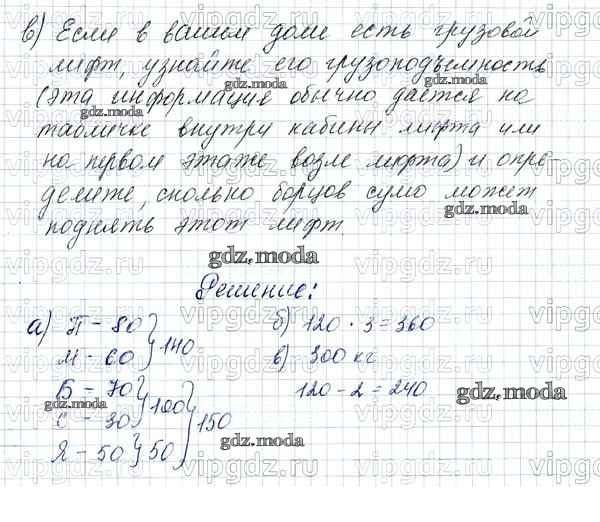 в) Если в вашем доме есть грузовой
лифт, узнайте его грузоподъемность
(эта информация обычно дается на
табличке внутри кабины лифта или
на первом этаже возле лифта) и опре-
делите, сколько борцов сумо может
поднять этот лифт
Решение:
а) П - 80
М - 60
140
Б - 70
С - 30
100
Я - 50
50
150
б) 120 · 3 = 360
в) 300 кг
120 - 2 = 240
gdz.moda
vipgdz.ru